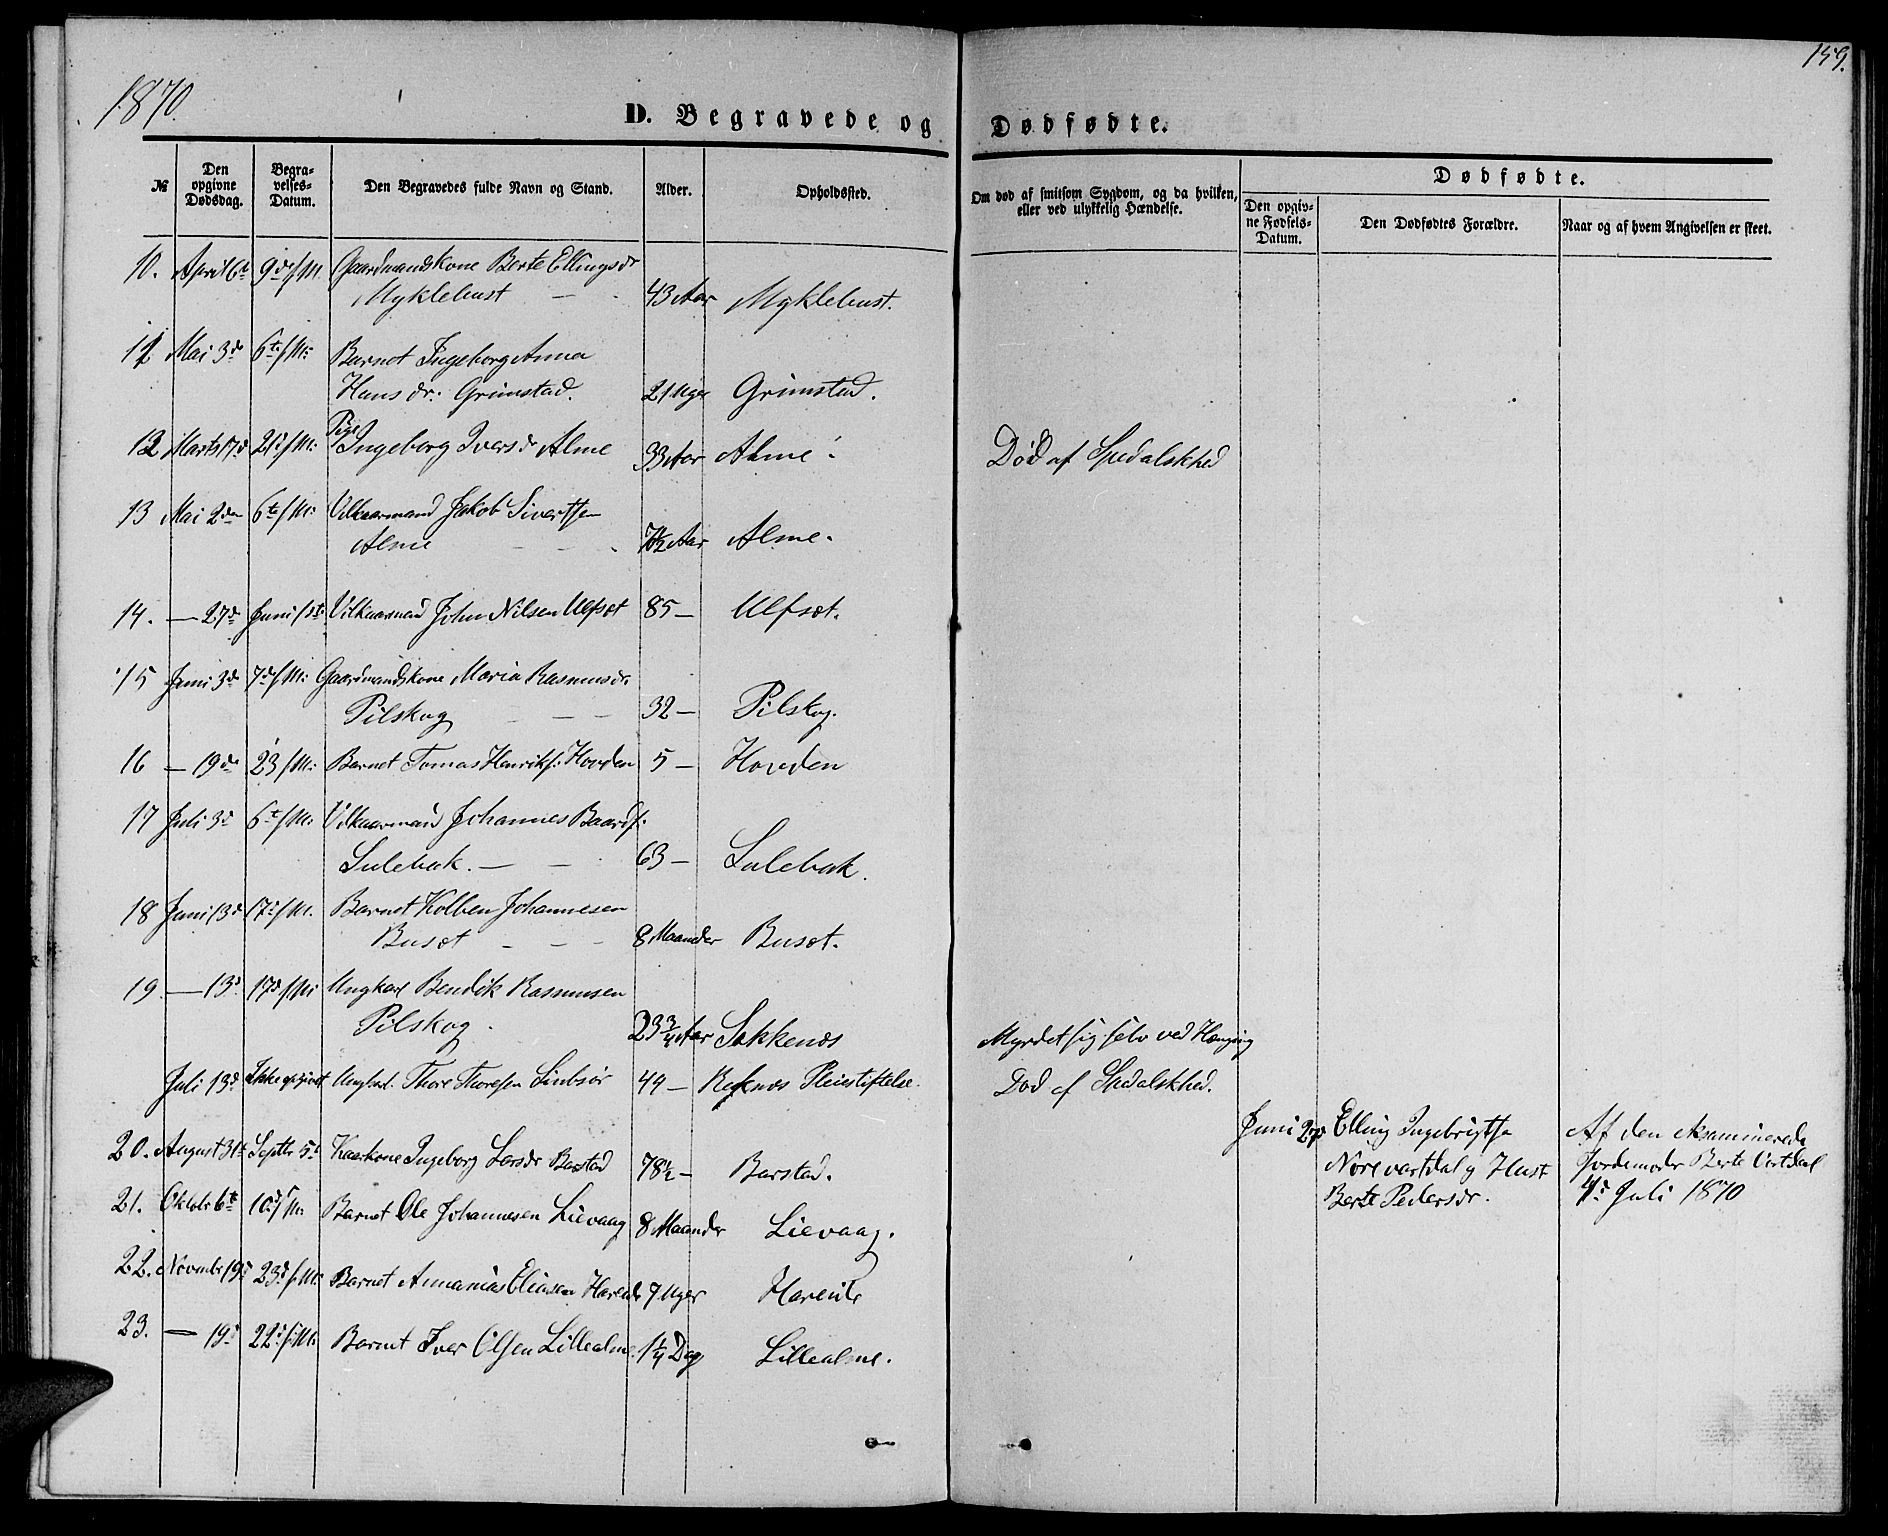 159.
1870.
D. Begravede og Dødfødte.
№
Den opgivne Dødsdag.
Begravelses-Datum.
Den Begravedes fulde Navn og Stand.
Alder.
Opholdssted.
Om død af smitsom Sygdom, og da hvilken, eller ved ulykkelig Hændelse.
Dødfødte.
Den opgivne Fødsels-Datum.
Den Dødfødtes Forældre.
Naar og af hvem Angivelsen er skeet.
10. April 6te 9de /M. Gaardmandskone Berte Ellingsdr
Myklebust — 43 Aar Myklebust.
11 Mai 3de 6te /M: Barnet Ingeborg Anna
Hansdr: Grimstad. 21 Uger Grimstad.
12 Marts 17d 21d /M: Pige Ingeborg Iversdr Alme 33 Aar Alme. Død af Spedalskhed
13 Mai 2den 6te /M: Vilkaarmand Jakob Sivertsen
Alme — — 71½ Aar Alme.
14. — 27de Juni 1ste Vilkaarmand John Nilsen Ulfsæt 85 — Ulfsæt.
15 Juni 3de 7de /M: Gaardmandskone Maria Rasmusdr.
Pilskog — — 32 — Pilskog.
16 — 19de 23 /M: Barnet Tomas Henriks: Hovden 5 — Hovden
17 Juli 3d 6te /M: Vilkaarmand Johannes Baards:
Sulebak. — — 63 — Sulebak.
18 Juni 13d 17d /M. Barnet Kolben Johannesen
Busæt — — 8 Maaneder Busæt.
19. — 13d 17d /M: Ungkarl Bendik Rasmusen
Pilskog. 23¾ Aar Søkkenes Myrdet sig selv ved Hænging
Juli 13d Ikke opgivet Ungkarl Thore Thoresen 49 — Reknæs Pleiestiftelse. Død af Spedalskhed.
Juni 27de Elling Ingebrigts
Nore vartdal og Hust
Berte Pedersdr.
Af den eksaminerede
Jordemoder Berte Vartdal
4d Juli 1870
20. August 31te Septbr 5te Kaarkone Ingeborg Larsdr Barstad 78½ — Barstad.
21. Oktobr 6te 10d /M. Barnet Ole Johannesen Lievaag 8 Maaneder Lievaag.
22. Novembr 19d 23d /M: Barnet Annanias Eliasen Hareide 7 Uger Hareide
23. — 19d 22d /M. Barnet Iver Olsen Lillealme. 1¼ Dag Lillealme.